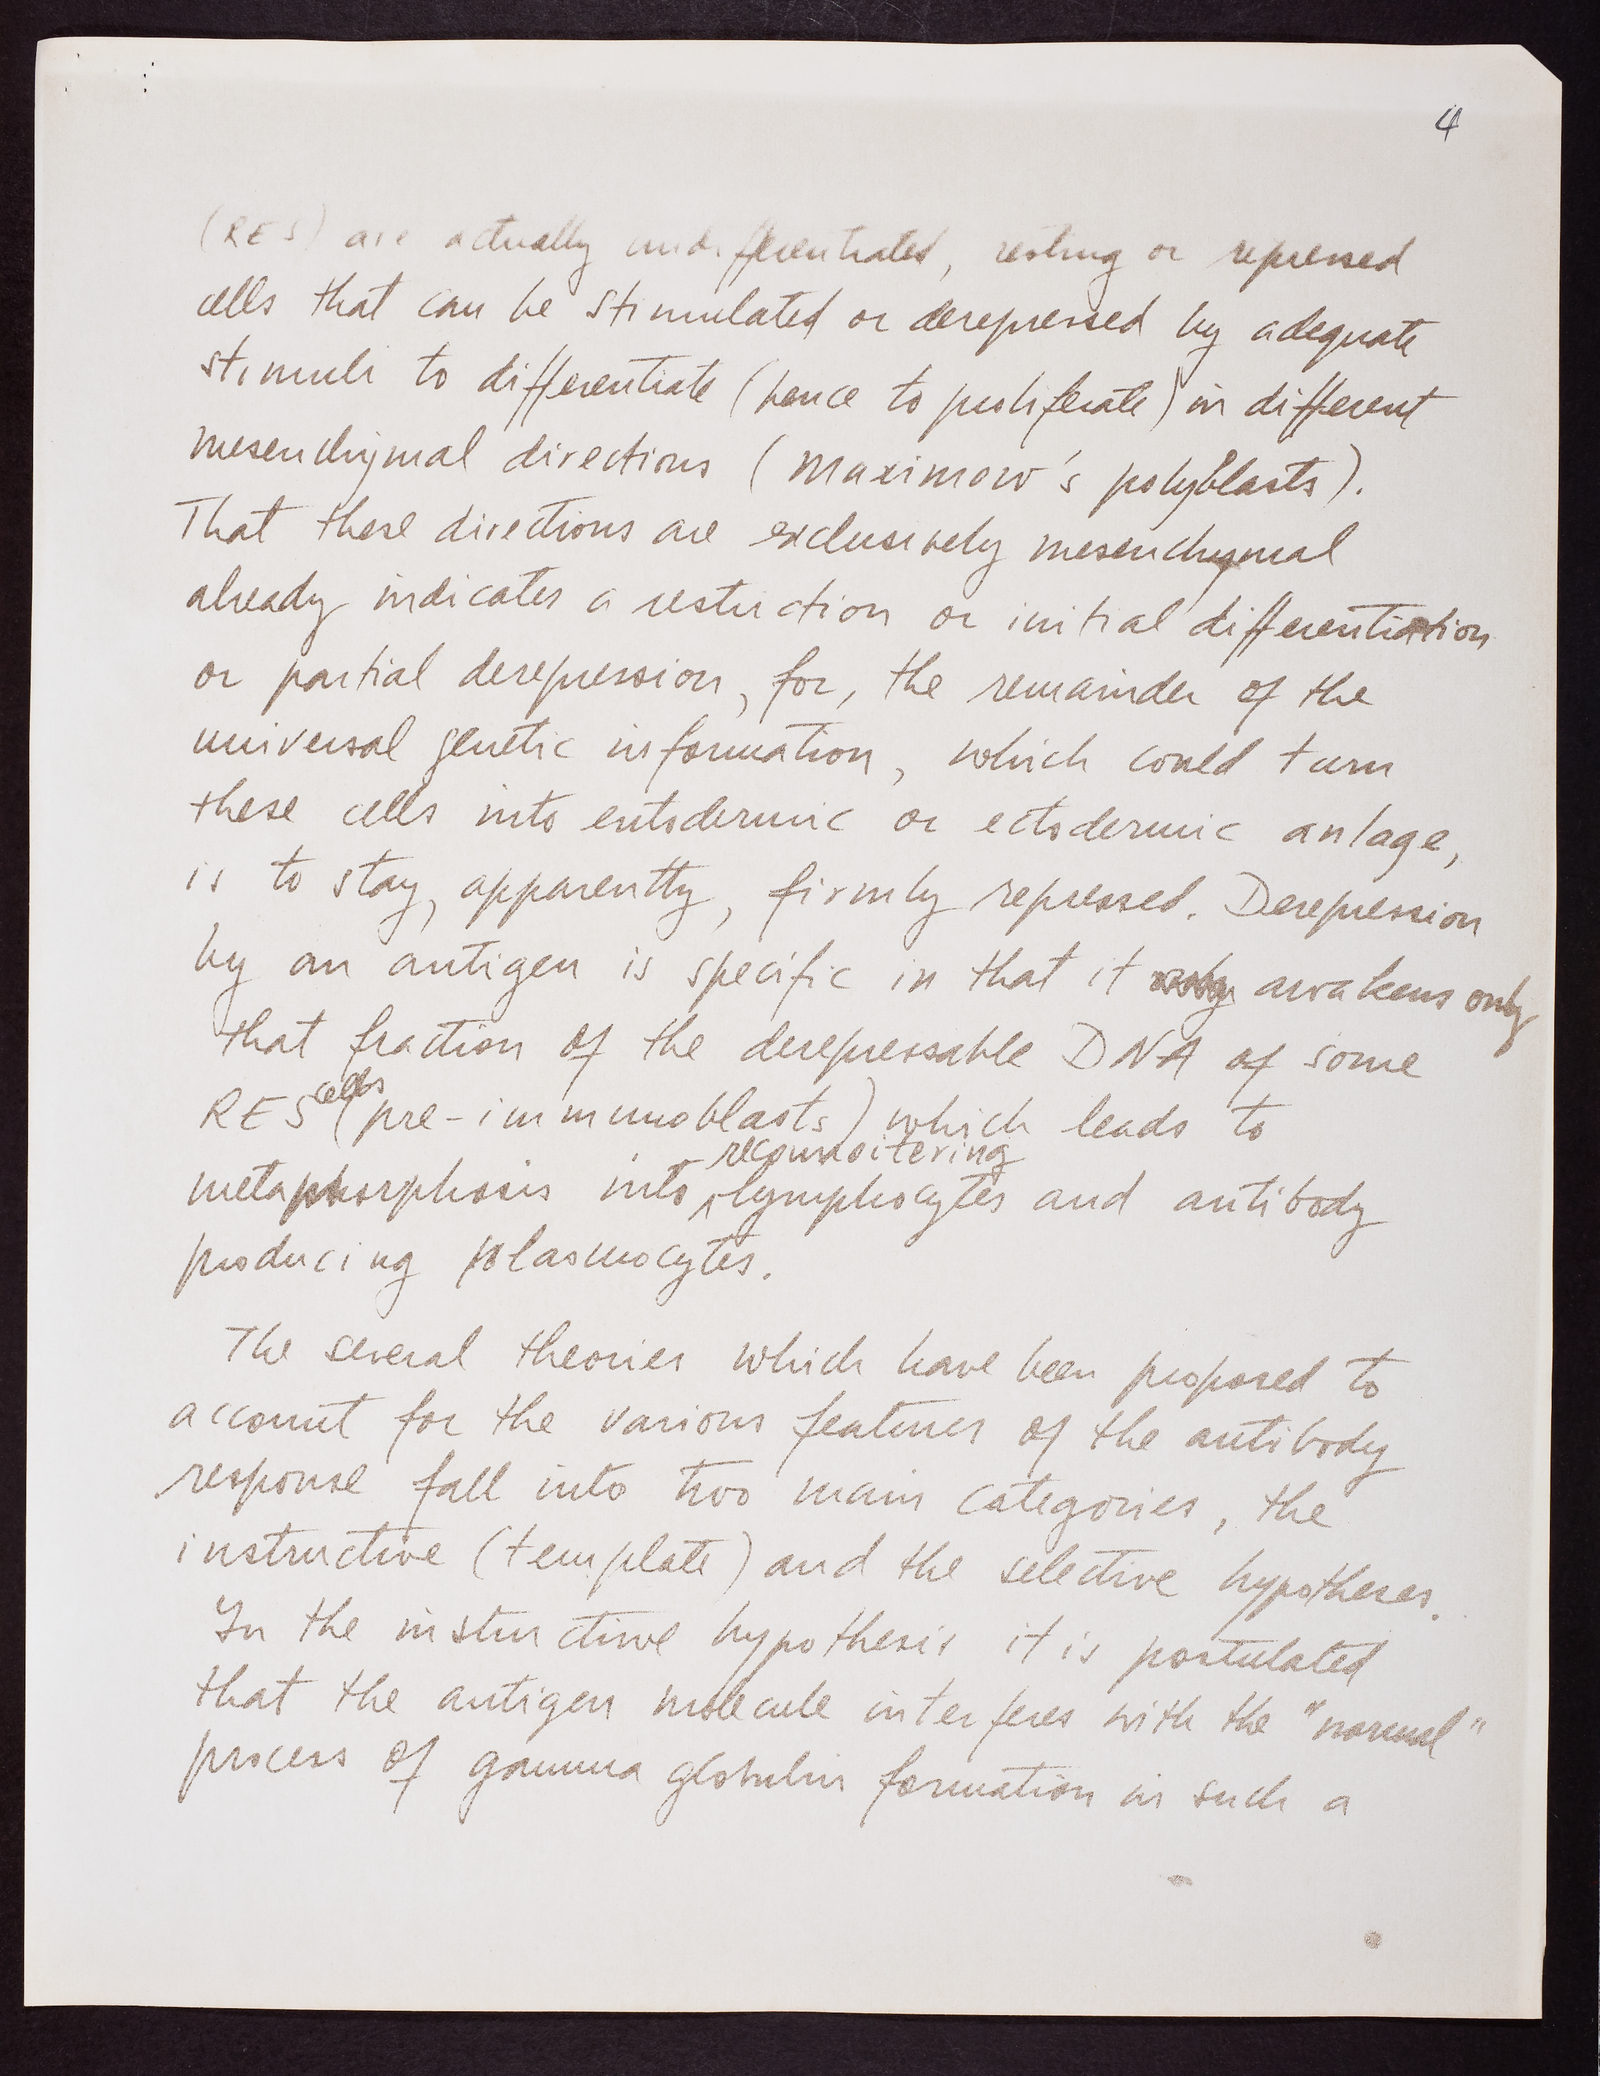 4
(RES) are actually undifferentiated, resting or repressed
cells that can be stimulated or derepressed by adequate
stimuli to differentiate (hence to proliferate) in different
mesenchymal directions (Maximow's polyblasts).
That these directions are exclusively mesenchymal
already indicates a restriction or initial differentiation
or partial derepression, for, the remainder of the
universal genetic information, which could turn
these cells into entodermic or ectodermic anlage,
is to stay, apparently, firmly repressed. Derepression
by an antigen is specific in that it awakens only
that fraction of the derepressable DNA of some
RES cells (pre-immunoblasts) which leads to
metamorphosis into reconnoitering lymphocytes and antibody
producing plasmocytes.
The several theories which have been proposed to
account for the various features of the antibody
response fall into two main categories, the
instructive (template) and the selective hypotheses.
In the instructive hypothesis it is postulated
that the antigen molecule interferes with the "normal"
process of gamma globulin formation in such a